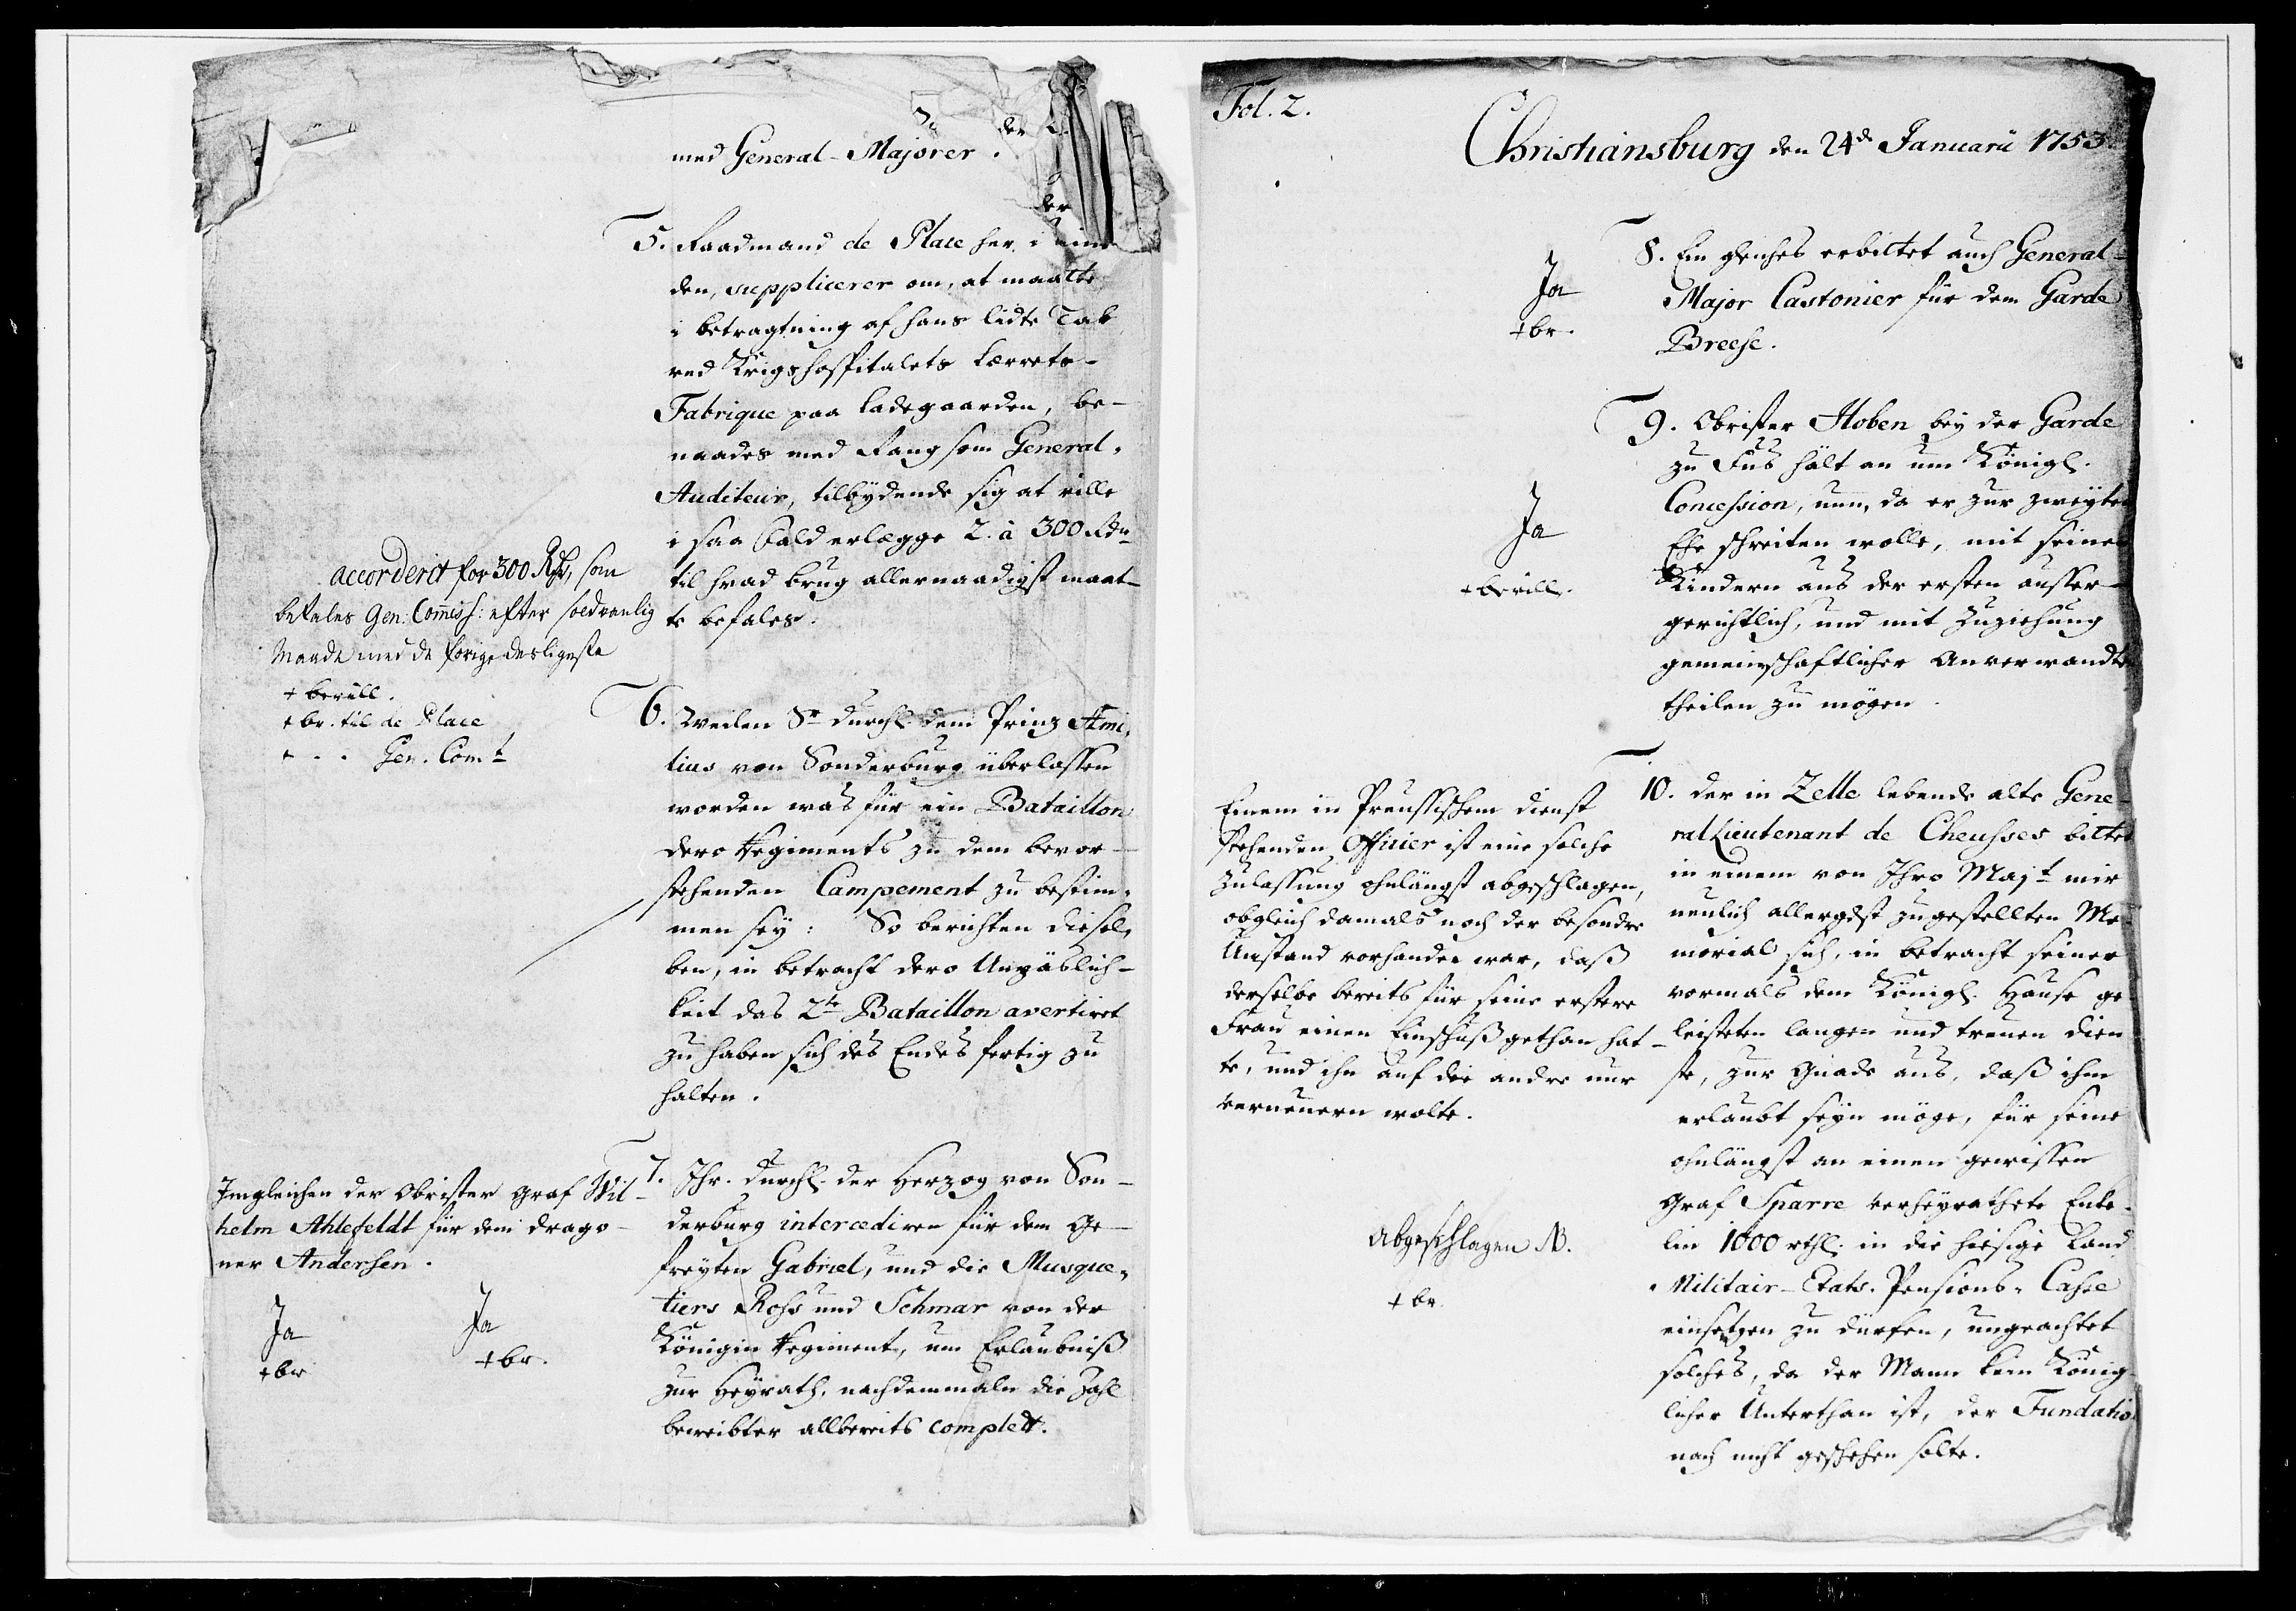 med General-Majorer.
5. Raadmand de Place her i
den, supplicerer om, at maatte
i betragtning af hans lidte Tab
ved Krigshospitalets Lærrets-
Fabrique paa Ladegaarden, be-
naades med Rang som General-
Auditeur, tilbydende sig at ville
i saa fald erlægge 2 à 300 Rdr
til hvad brug allernaadigst maat-
te befales.
accorderet for 300 Rdr, som
betales Gen: Commiss: efter sædvanlig
Maade med de forige desligeste
+ bevill.
+ br. til de Place
+ . . . Gen. Comt
6. Weilen Sr Durchl. dem Prinz Æmi-
lius von Sonderburg überlassen
worden was für ein Bataillon
dero Regiments zu dem bevor-
stehenden Campement zu bestim-
men sey: So berichten diesel-
ben, in betracht dero Unpäßlich-
keit das 2te Bataillon avertiret
zu haben sich des Endes fertig zu
halten.
7. Ihr. Durchl. der Herzog von Son-
derburg intercediren für dem Ge-
freyten Gabriel, und die Musque-
tiers Ross und Schmar von der
Königin Regiment, um Erlaubniß
zur Heyrath, nachdemmaln die Zahl
beweibter allbereits complett.
Imgleichen der Obrister Graf Wil-
helm Ahlefeldt für dem Drago-
ner Andersen.
Ja
+br
Ja
+br.
Fol. 2.
Christiansburg den 24de Januarii 1753
8. Ein gleiches erbittet auch General-
Major Castonier für dem Garde
Breese.
Ja
+br.
9. Obrister Hoben bey der Garde
zu Fuß hält an um Königl.
Concession, um, da er zur zweyten
Ehe schreiten wolle, mit seinen
Kindern aus der ersten ausser-
gerichtlich, und mit Zuziehung
gemeinschaftlicher Anverwandten
theilen zu mögen.
Ja
+bevill.
10. Der in Zelle lebende alte Gene-
ralLieutenant de Cheusses bittet
in einem von Ihro Majt mir
neulich allergdst zugestellten Me-
morial sich, in betracht seiner
vormals dem Königl. Hause ge-
leisteten langen und treuen Dien
ste, zur Gnade aus, daß ihm
erlaubt seyn möge, für seine
ohnlängst an einen gewissen
Graf Sparre verheyrathete Enke-
lin 1000 rthl. in die hiesige Land
Militair-Etats-Pensions-Casse
einsetzen zu dürfen, ungeachtet
solches, da der Mann kein König-
licher Unterthan ist, der Fundation
nach nicht geschehen solte.
Einem in Preussischem Dienst
stehenden Officier ist eine solche
Zulassung ohnlängst abgeschlagen,
obgleich damals noch der besondre
Umstand vorhanden war, daß
derselbe bereits für seine erstere
Frau einen Einschuß gethan hat-
te, und ihn auf die andre nur
erneuern wolte.
Abgeschlagen NB.
+br.